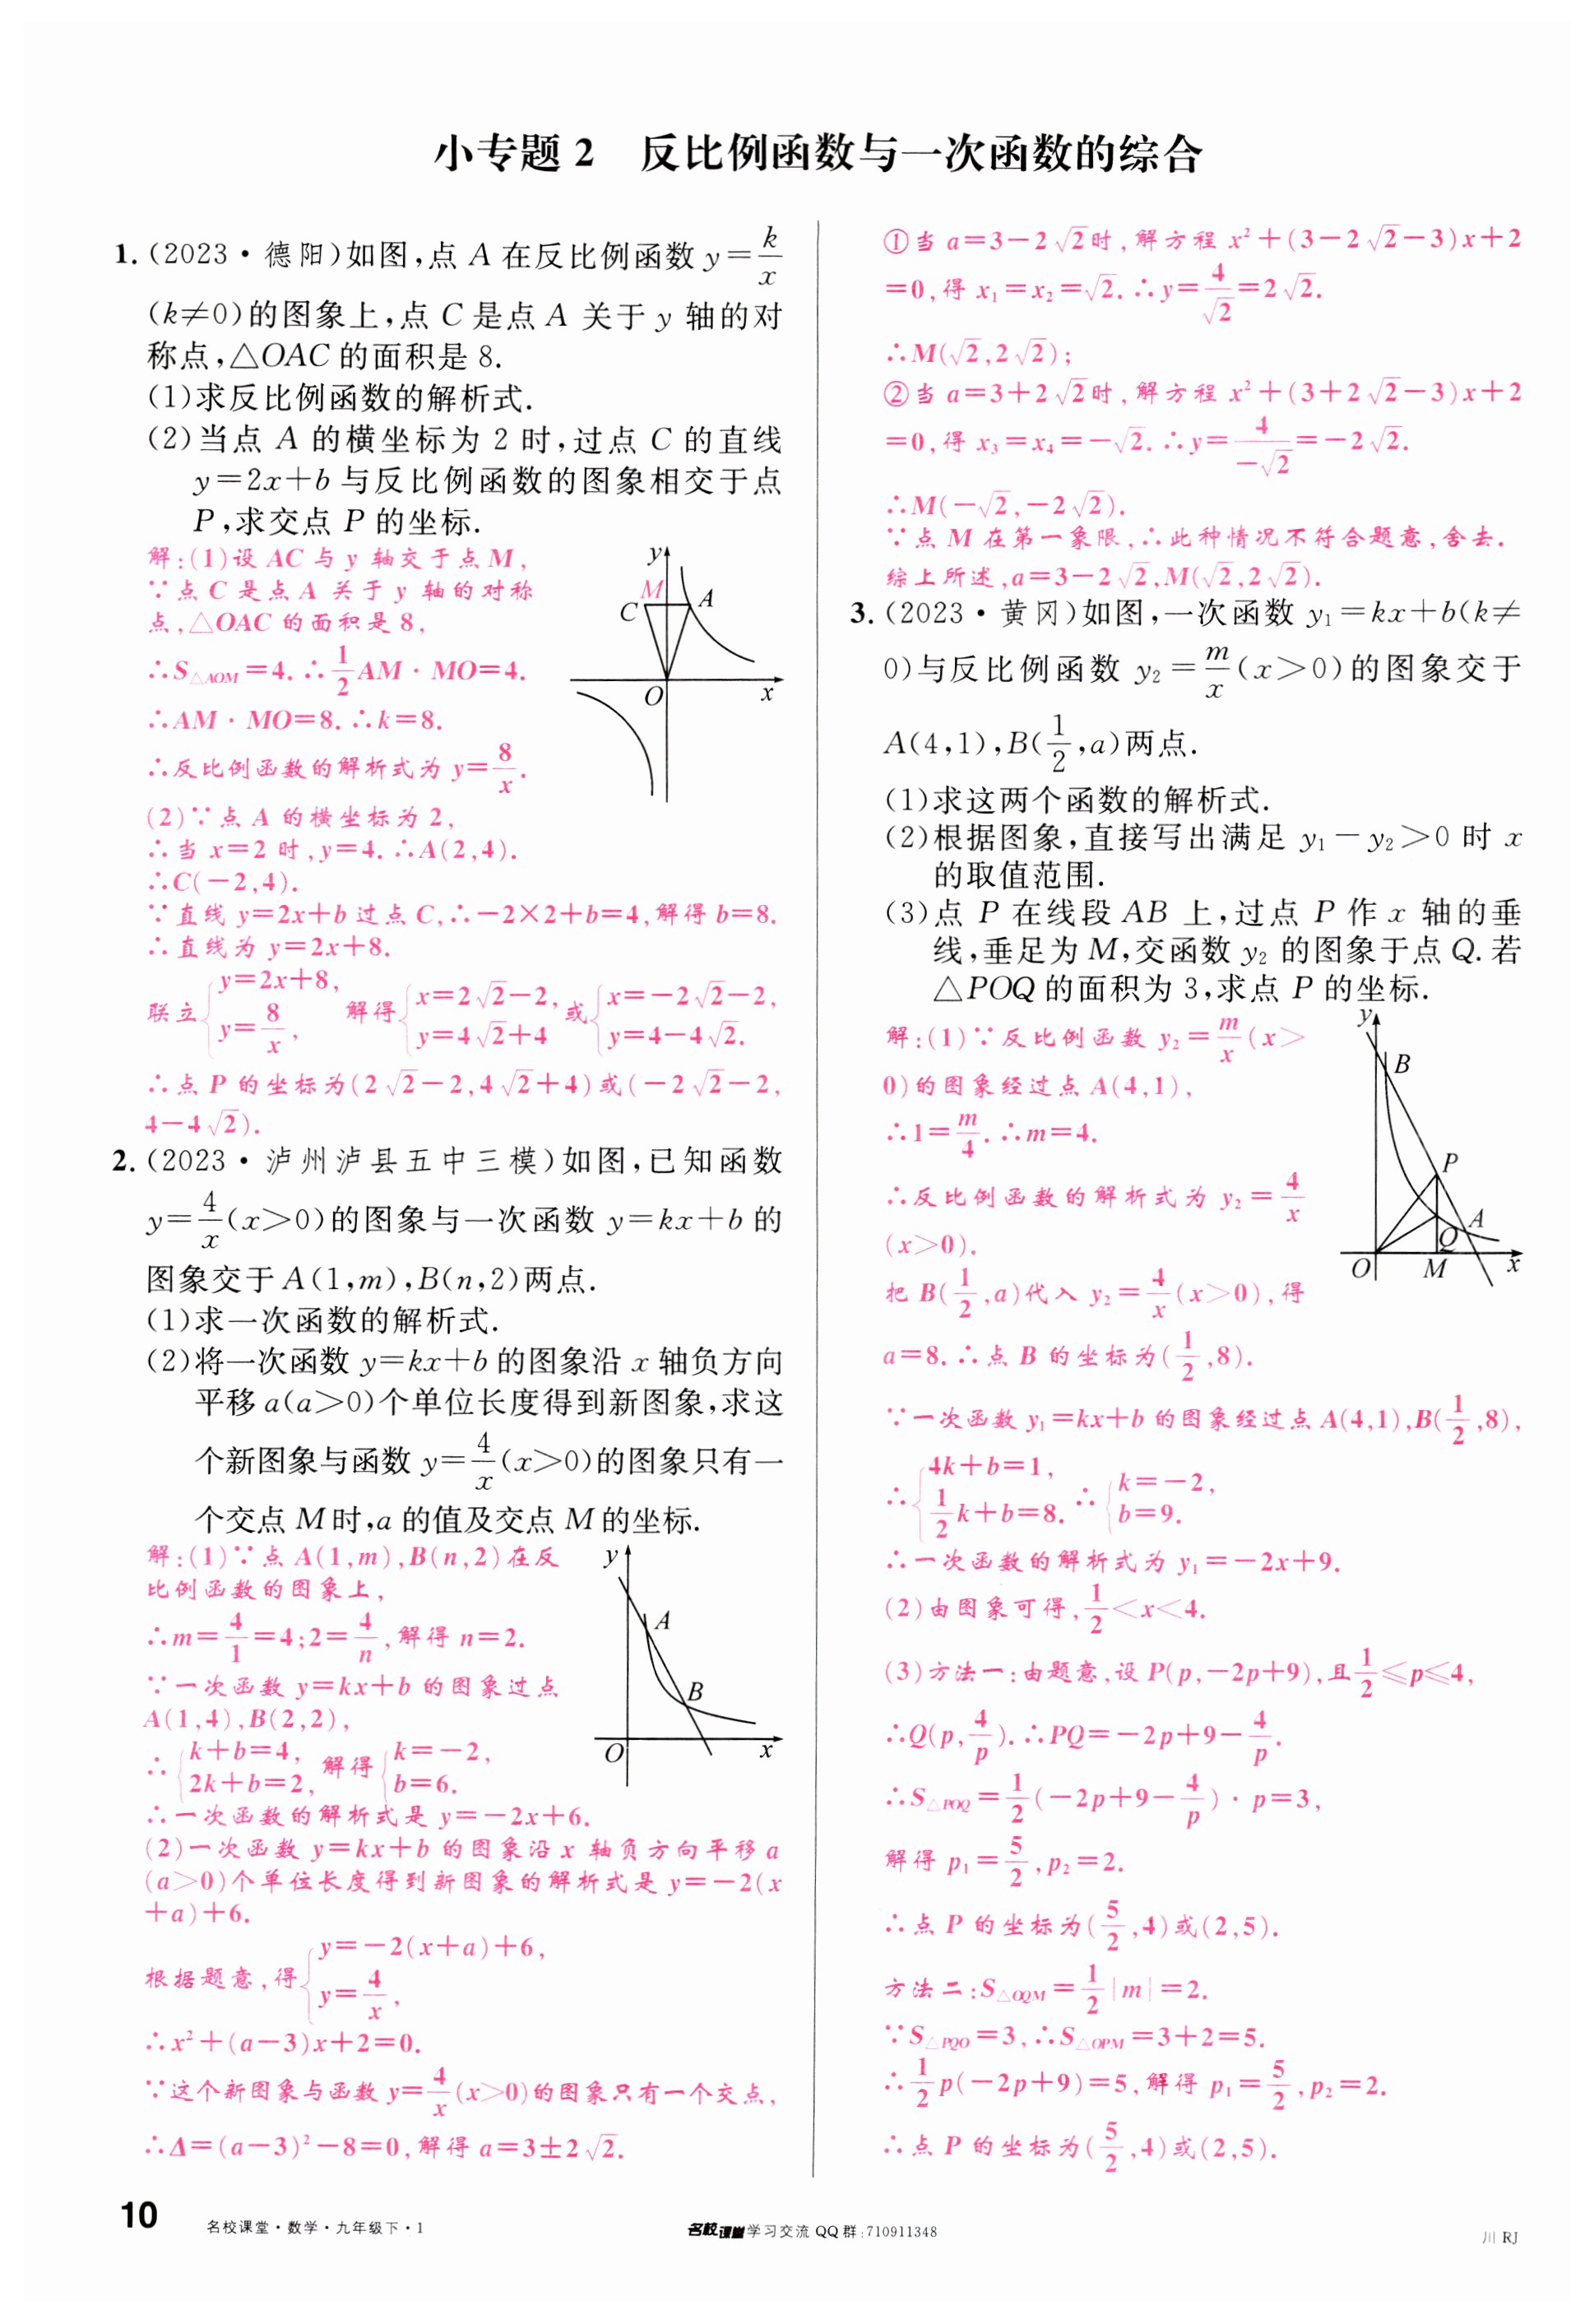 小专题2 反比例函数与一次函数的综合
1.(2023·德阳)如图,点A在反比例函数y=k/x
(k≠0)的图象上,点C是点A关于y轴的对
称点,△OAC的面积是8.
(1)求反比例函数的解析式.
(2)当点A的横坐标为2时,过点C的直线
y=2x+b与反比例函数的图象相交于点
P,求交点P的坐标.
解:(1)设AC与y轴交于点M,
∵点C是点A关于y轴的对称
点,△OAC的面积是8,
∴S△AOM=4.∴1/2AM·MO=4.
∴AM·MO=8.∴k=8.
∴反比例函数的解析式为y=8/x.
y
M
C
A
O
x
(2)∵点A的横坐标为2,
∴当x=2时,y=4.∴A(2,4).
∴C(-2,4).
∵直线y=2x+b过点C,∴-2×2+b=4,解得b=8.
∴直线为y=2x+8.
联立{y=2x+8, y=8/x, 解得{x=2√2-2, y=4√2+4 或{x=-2√2-2, y=4-4√2.
∴点P的坐标为(2√2-2,4√2+4)或(-2√2-2,
4-4√2).
2.(2023·泸州泸县五中三模)如图,已知函数
y=4/x(x>0)的图象与一次函数y=kx+b的
图象交于A(1,m),B(n,2)两点.
(1)求一次函数的解析式.
(2)将一次函数y=kx+b的图象沿x轴负方向
平移a(a>0)个单位长度得到新图象,求这
个新图象与函数y=4/x(x>0)的图象只有一
个交点M时,a的值及交点M的坐标.
解:(1)∵点A(1,m),B(n,2)在反
比例函数的图象上,
∴m=4/1=4;2=4/n,解得n=2.
∵一次函数y=kx+b的图象过点
A(1,4),B(2,2),
∴{k+b=4, 2k+b=2, 解得{k=-2, b=6.
y
A
B
O
x
∴一次函数的解析式是y=-2x+6.
(2)一次函数y=kx+b的图象沿x轴负方向平移a
(a>0)个单位长度得到新图象的解析式是y=-2(x
+a)+6.
根据题意,得{y=-2(x+a)+6, y=4/x,
∴x²+(a-3)x+2=0.
∵这个新图象与函数y=4/x(x>0)的图象只有一个交点,
∴Δ=(a-3)²-8=0,解得a=3±2√2.
①当a=3-2√2时,解方程x²+(3-2√2-3)x+2
=0,得x₁=x₂=√2.∴y=4/√2=2√2.
∴M(√2,2√2);
②当a=3+2√2时,解方程x²+(3+2√2-3)x+2
=0,得x₃=x₄=-√2.∴y=4/-√2=-2√2.
∴M(-√2,-2√2).
∵点M在第一象限,∴此种情况不符合题意,舍去.
综上所述,a=3-2√2,M(√2,2√2).
3.(2023·黄冈)如图,一次函数y₁=kx+b(k≠
0)与反比例函数y₂=m/x(x>0)的图象交于
A(4,1),B(1/2,a)两点.
(1)求这两个函数的解析式.
(2)根据图象,直接写出满足y₁-y₂>0时x
的取值范围.
(3)点P在线段AB上,过点P作x轴的垂
线,垂足为M,交函数y₂的图象于点Q.若
△POQ的面积为3,求点P的坐标.
解:(1)∵反比例函数y₂=m/x(x>
0)的图象经过点A(4,1),
∴1=m/4.∴m=4.
∴反比例函数的解析式为y₂=4/x
(x>0).
把B(1/2,a)代入y₂=4/x(x>0),得
a=8.∴点B的坐标为(1/2,8).
y
B
P
A
Q
O
M
x
∵一次函数y₁=kx+b的图象经过点A(4,1),B(1/2,8),
∴{4k+b=1, 1/2k+b=8. ∴{k=-2, b=9.
∴一次函数的解析式为y₁=-2x+9.
(2)由图象可得,1/2<x<4.
(3)方法一:由题意,设P(p,-2p+9),且1/2≤p≤4,
∴Q(p,4/p).∴PQ=-2p+9-4/p.
∴S△POQ=1/2(-2p+9-4/p)·p=3,
解得p₁=5/2,p₂=2.
∴点P的坐标为(5/2,4)或(2,5).
方法二:S△OQM=1/2|m|=2.
∵S△PQO=3,∴S△OPM=3+2=5.
∴1/2p(-2p+9)=5,解得p₁=5/2,p₂=2.
∴点P的坐标为(5/2,4)或(2,5).
10 名校课堂·数学·九年级下·1
名校课堂学习交流QQ群:710911348
川RJ